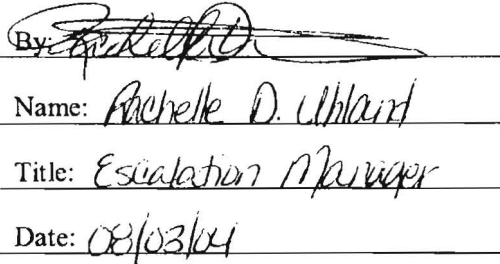 By:
Name: Rachelle D. Uhland
Title: Escalation Manager
Date: 08/03/04